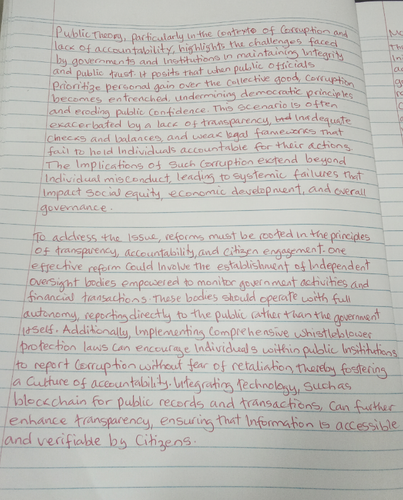 Public Theory, particularly in the contexts of Corruption and
lack of accountability, highlights the challenges faced
by governments and Institutions in maintaining Integrity
and public trust. It posits that when public officials
Prioritize personal gain over the collective good, Corruption
becomes entrenched, undermining democratic principles
and eroding public Confidence. This Scenario is often
exacerbated by a lack of transparency, Inadequate
Checks and balances, and weak legal frameworks that
fail to hold Individuals accountable for their actions.
The Implications of Such Corruption extend beyond
Individual misconduct, leading to systemic failures that
Impact social equity, economic development, and overall
governance.
To address the Issue, reforms must be rooted in the principles
of transparency, accountability, and Citizen engagement. One
effective reform Could Involve the establishment of Independent
oversight bodies empowered to monitor government activities and
financial transactions. These bodies should operate with full
autonomy, reporting directly to the public rather than the government
Itself. Additionally, Implementing Comprehensive whistleblower
protection laws Can encourage Individuals within public Institutions
to report Corruption without fear of retaliation, thereby fostering
a Culture of accountability. Integrating technology, Such as
blockchain for public records and transactions, Can further
enhance transparency, ensuring that Information Is accessible
and verifiable by Citizens.